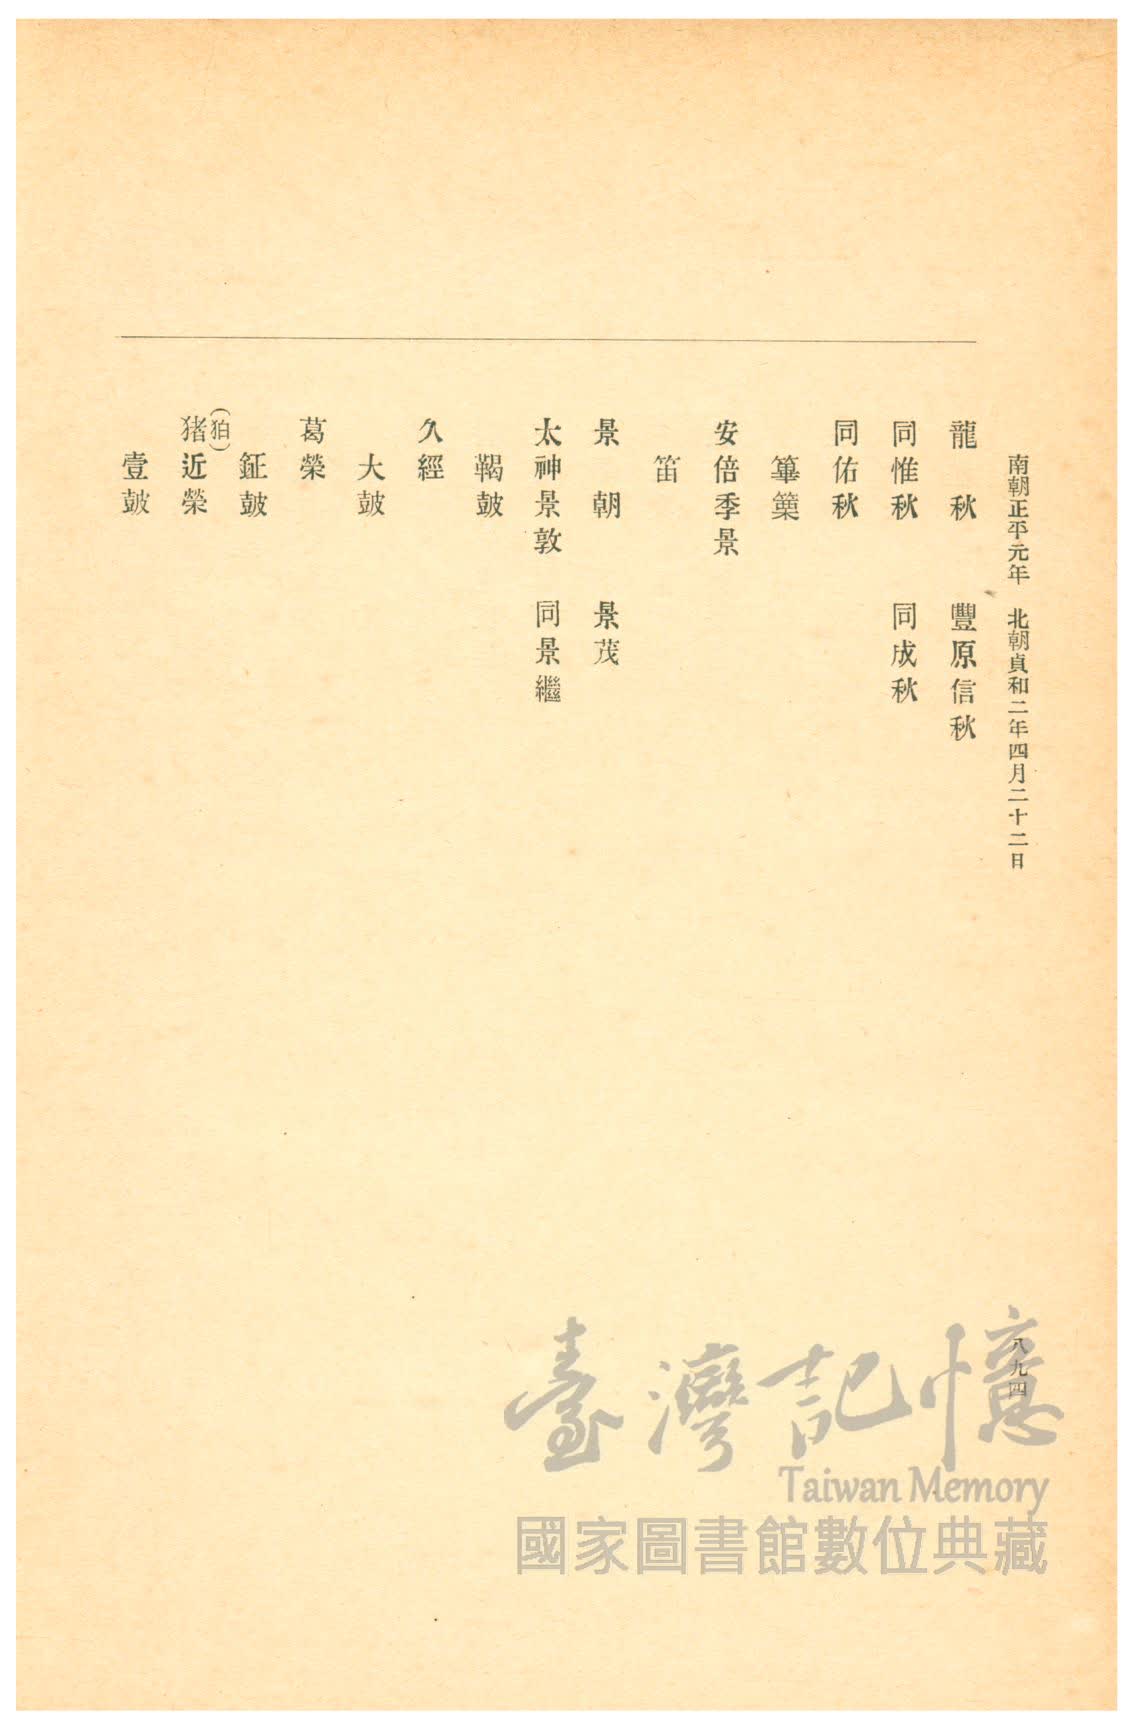 南朝正平元年　北朝貞和二年四月二十二日
八九四
龍　秋　　豐原信秋
同惟秋　　同成秋
同佑秋
篳篥
安倍季景
笛
景　朝　　景茂
太神景敦　同景繼
鞨鼓
久經
大鼓
葛榮
鉦鼓
(狛)
猪近榮
壹鼓
臺灣記憶
Taiwan Memory
國家圖書館數位典藏